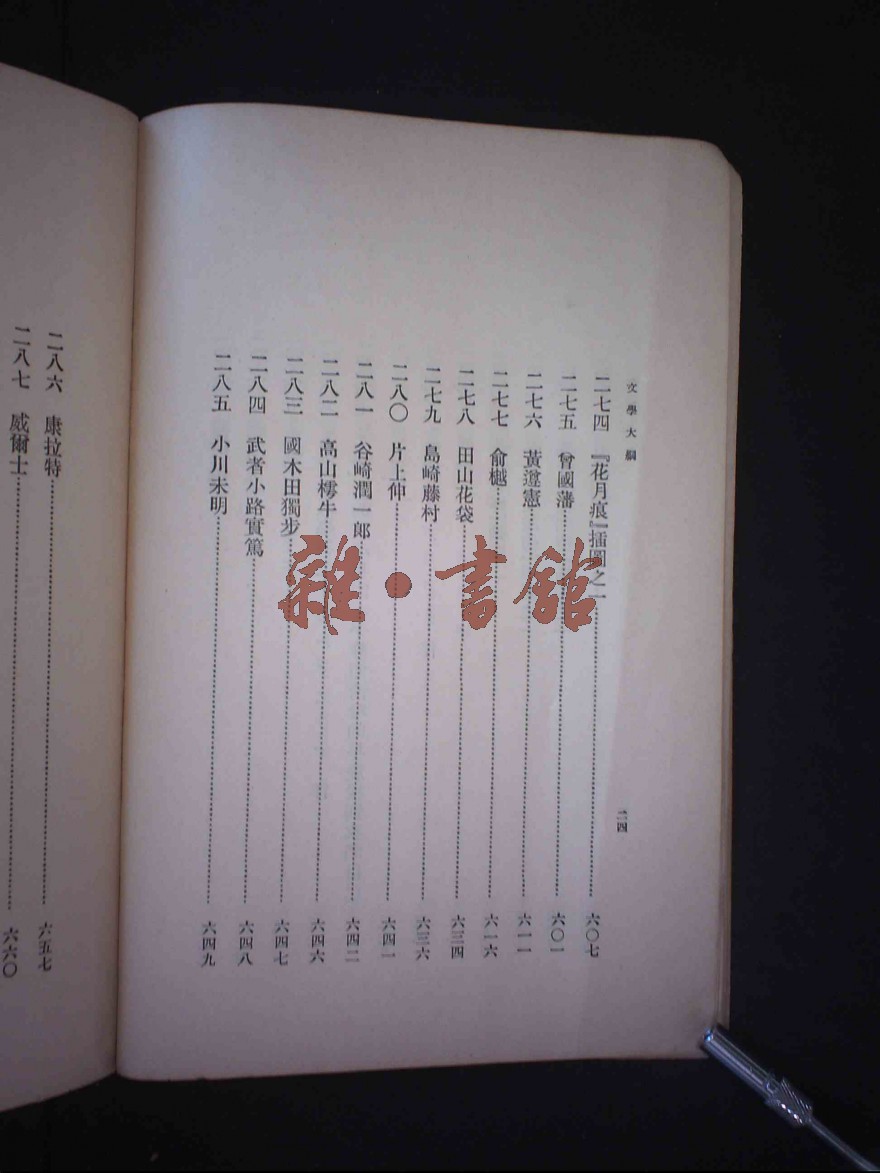 文學大綱
二七四 『花月痕』插圖之一…………六〇七
二七五 曾國藩…………六〇一
二七六 黃遵憲…………六一一
二七七 俞樾…………六一六
二七八 田山花袋…………六三四
二七九 島崎藤村…………六三六
二八〇 片上伸…………六四一
二八一 谷崎潤一郎…………六四二
二八二 高山樗牛…………六四六
二八三 國木田獨步…………六四七
二八四 武者小路實篤…………六四八
二八五 小川未明…………六四九
二四
二八六 康拉特…………六五七
二八七 威爾士…………六六〇
雜·書館